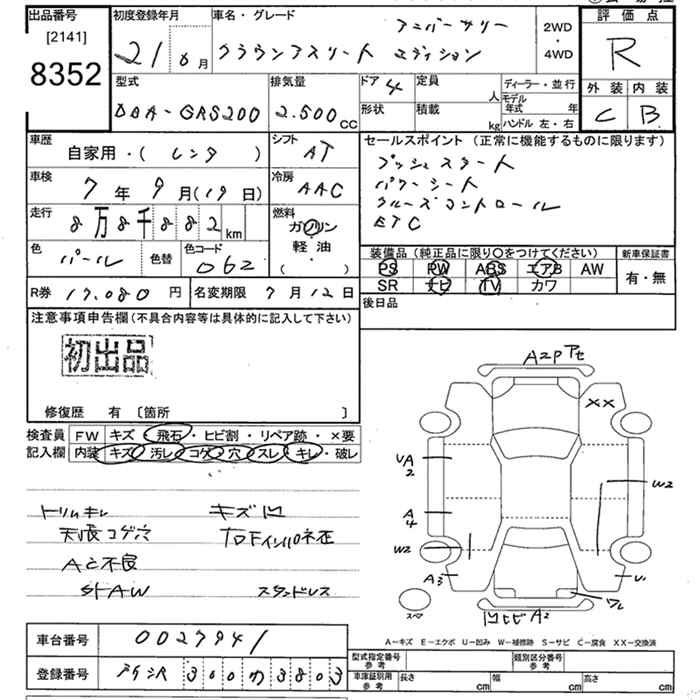 出品番号
[2141]
8352
初度登録年月
21 8月
車名・グレード
クラウンアスリート アニバーサリー エディション
2WD
・
4WD
評価点
R
外装 内装
C B
型式
DBA-GRS200
排気量
2.500CC
ドア 4
形状
定員
人
積載
kg
ディーラー・並行
モデル年式 年
ハンドル 左・右
車歴
自家用・( レンタ )
シフト
AT
車検
7年9月(19日)
冷房
AAC
走行
8万8千882km
燃料
ガソリン
軽油
( ・ )
色
パール
色替
色コード
062
R券 17.080円
名変期限 7月12日
セールスポイント(正常に機能するものに限ります)
プッシュスタート
パワーシート
クルーズコントロール
ETC
装備品(純正品に限り○をつけてください)
PS PW ABS エアB AW
SR ナビ TV カワ
新車保証書
有・無
後日品
注意事項申告欄(不具合内容等は具体的に記入して下さい)
初出品
修復歴 有 〔箇所 〕
検査員記入欄
FW キズ・飛石・ヒビ割・リペア跡・×要
内装 キズ・汚レ・コゲ・穴・スレ・キレ・破レ
トリムキレ キズ凹
天張コゲ穴
A/C不良
SFAW スタンドレス
A2P Pセ
XX
UA2
A4
W2
W2
A3
U1
スペア
凹ヒビA2
ワレ
A-キズ E-エクボ U-凹み W-補修跡 S-サビ C-腐食 XX-交換済
車台番号 0027941
登録番号 300 3803
型式指定番号 参考
類別区分番号 参考
車庫証明用 参考
長さ cm
幅 cm
高さ cm